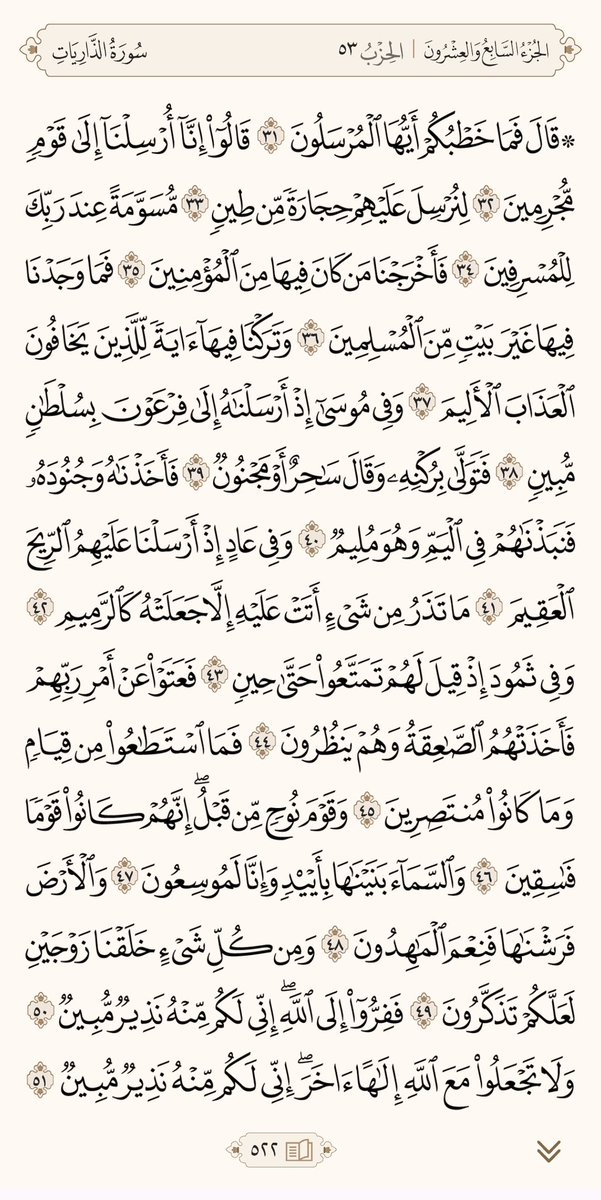 الجُزْءُ السَّابِعُ وَالعِشْرُونَ | الحِزْبُ ٥٣ سُورَةُ الذَّارِيَاتِ
۞ قَالَ فَمَا خَطْبُكُمْ أَيُّهَا ٱلْمُرْسَلُونَ ٣١ قَالُوٓا۟ إِنَّآ أُرْسِلْنَآ إِلَىٰ قَوْمٍ
مُّجْرِمِينَ ٣٢ لِنُرْسِلَ عَلَيْهِمْ حِجَارَةً مِّن طِينٍ ٣٣ مُّسَوَّمَةً عِندَ رَبِّكَ
لِلْمُسْرِفِينَ ٣٤ فَأَخْرَجْنَا مَن كَانَ فِيهَا مِنَ ٱلْمُؤْمِنِينَ ٣٥ فَمَا وَجَدْنَا
فِيهَا غَيْرَ بَيْتٍ مِّنَ ٱلْمُسْلِمِينَ ٣٦ وَتَرَكْنَا فِيهَآ ءَايَةً لِّلَّذِينَ يَخَافُونَ
ٱلْعَذَابَ ٱلْأَلِيمَ ٣٧ وَفِى مُوسَىٰٓ إِذْ أَرْسَلْنَٰهُ إِلَىٰ فِرْعَوْنَ بِسُلْطَٰنٍ
مُّبِينٍ ٣٨ فَتَوَلَّىٰ بِرُكْنِهِۦ وَقَالَ سَٰحِرٌ أَوْ مَجْنُونٌ ٣٩ فَأَخَذْنَٰهُ وَجُنُودَهُۥ
فَنَبَذْنَٰهُمْ فِى ٱلْيَمِّ وَهُوَ مُلِيمٌ ٤٠ وَفِى عَادٍ إِذْ أَرْسَلْنَا عَلَيْهِمُ ٱلرِّيحَ
ٱلْعَقِيمَ ٤١ مَا تَذَرُ مِن شَىْءٍ أَتَتْ عَلَيْهِ إِلَّا جَعَلَتْهُ كَٱلرَّمِيمِ ٤٢
وَفِى ثَمُودَ إِذْ قِيلَ لَهُمْ تَمَتَّعُوا۟ حَتَّىٰ حِينٍ ٤٣ فَعَتَوْا۟ عَنْ أَمْرِ رَبِّهِمْ
فَأَخَذَتْهُمُ ٱلصَّٰعِقَةُ وَهُمْ يَنظُرُونَ ٤٤ فَمَا ٱسْتَطَٰعُوا۟ مِن قِيَامٍ
وَمَا كَانُوا۟ مُنتَصِرِينَ ٤٥ وَقَوْمَ نُوحٍ مِّن قَبْلُ ۖ إِنَّهُمْ كَانُوا۟ قَوْمًا
فَٰسِقِينَ ٤٦ وَٱلسَّمَآءَ بَنَيْنَٰهَا بِأَيْي۟دٍ وَإِنَّا لَمُوسِعُونَ ٤٧ وَٱلْأَرْضَ
فَرَشْنَٰهَا فَنِعْمَ ٱلْمَٰهِدُونَ ٤٨ وَمِن كُلِّ شَىْءٍ خَلَقْنَا زَوْجَيْنِ
لَعَلَّكُمْ تَذَكَّرُونَ ٤٩ فَفِرُّوٓا۟ إِلَى ٱللَّهِ ۖ إِنِّى لَكُم مِّنْهُ نَذِيرٌ مُّبِينٌ ٥٠
وَلَا تَجْعَلُوا۟ مَعَ ٱللَّهِ إِلَٰهًا ءَاخَرَ ۖ إِنِّى لَكُم مِّنْهُ نَذِيرٌ مُّبِينٌ ٥١
٥٢٢